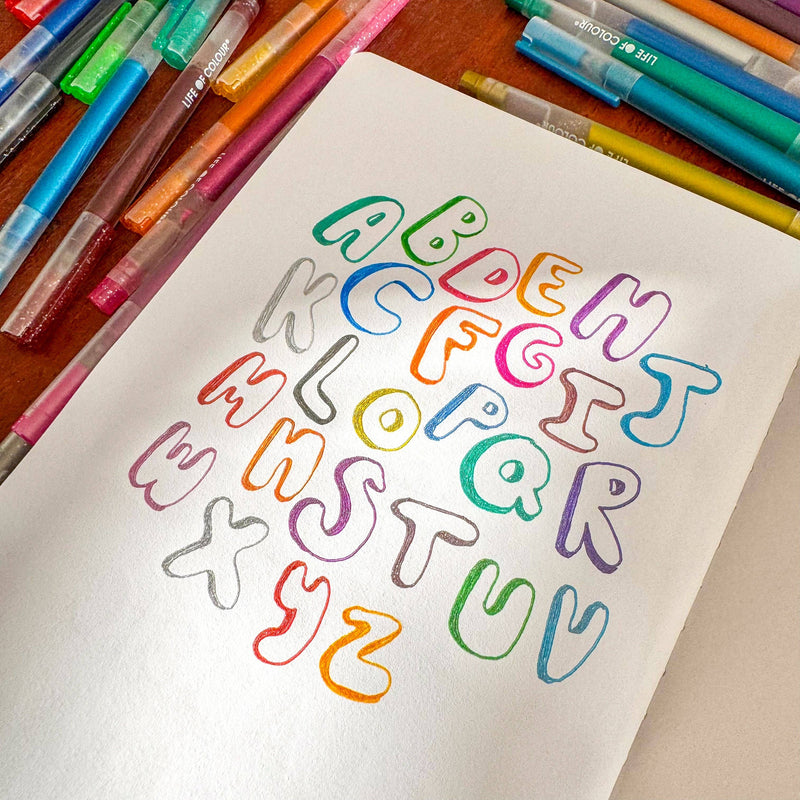 LIFE OF COLOUR
LIFE OF COLOUR
LIFE OF COLOUR
A B C D E
F G H I J
K L O P Q R
M N S T U V
W X Y Z